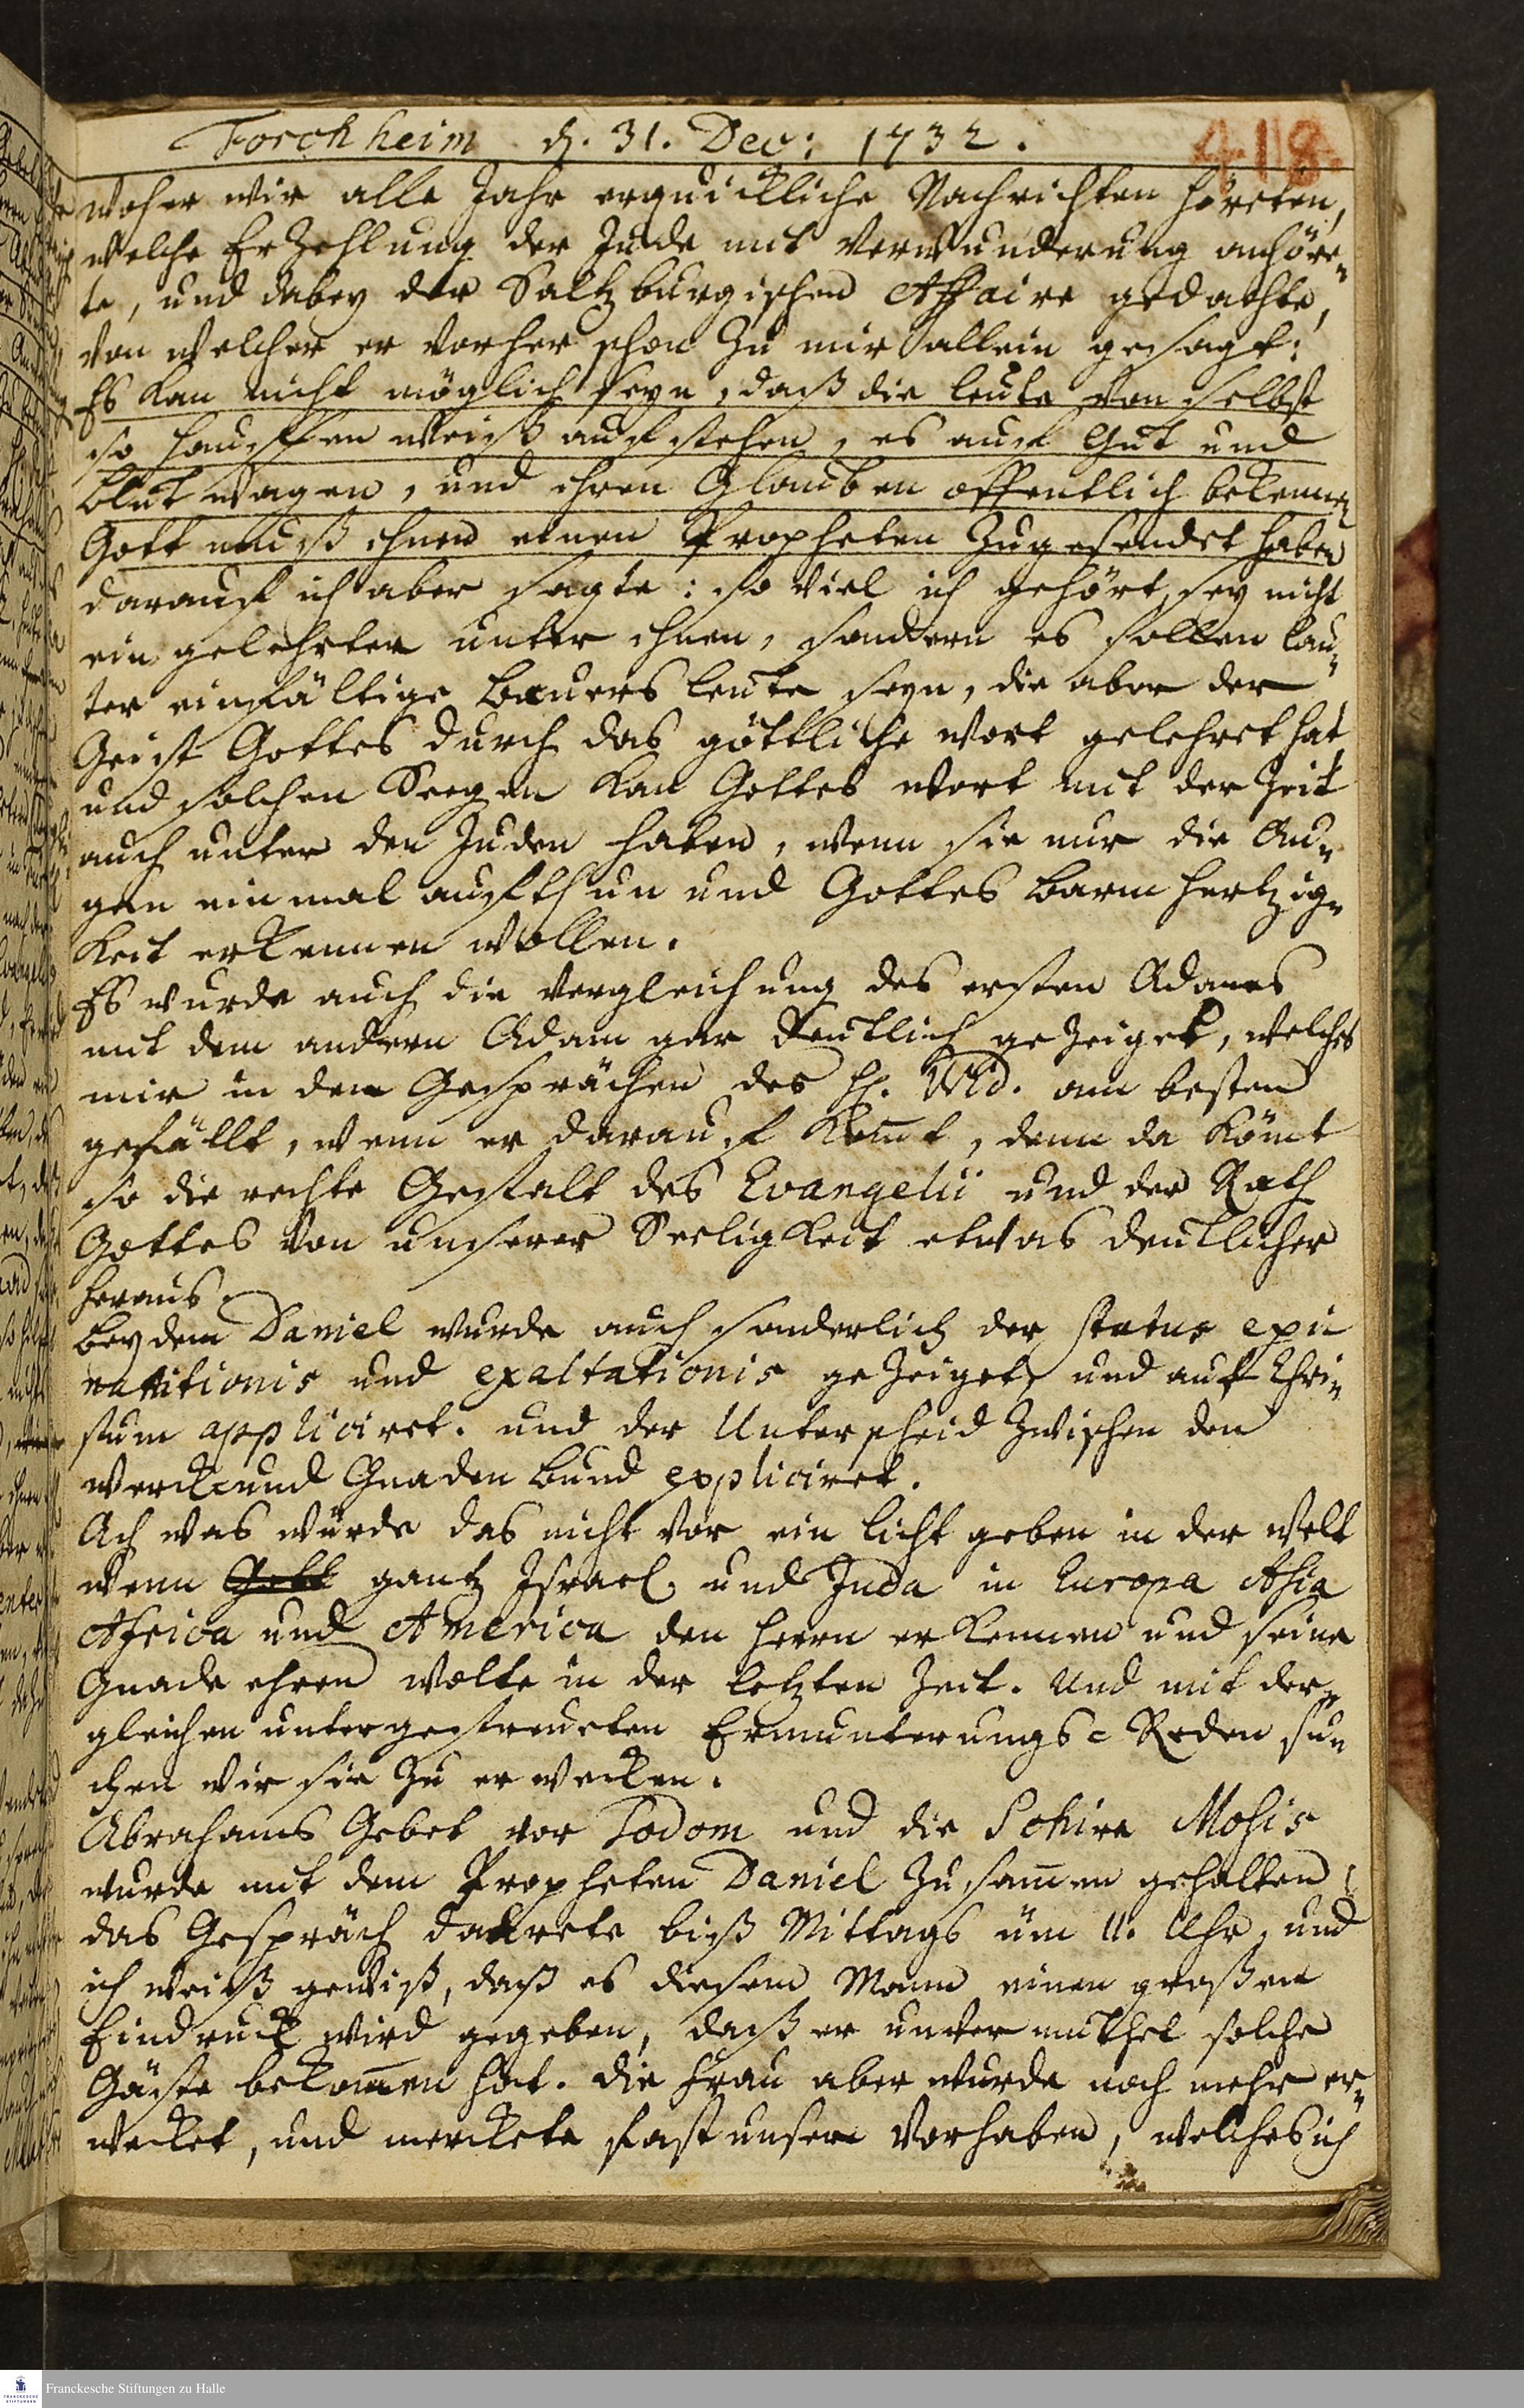 Forchheim d. 31. Dec: 1732.
418.
woher wir alle Jahr erquickliche Nachrichten höreten,
welche Erzehlung der Jude mit Verwunderung anhöre-
te, und dabey der Saltzburgischen Affaire gedachte,
von welcher er vorher schon zu mir allein gesagt:
Es kan nicht möglich seyn, daß die leute von selbst
so hauffen weiß aufstehen, es auf Gut und
blut wagen, und ihren Glauben öffentlich bekennen
Gott muß ihnen einen Propheten zugesendet haben
darauf ich aber sagte: so viel ich gehört, sey nicht
ein gelehrter unter ihnen, sondern es sollen lau-
ter einfältige bauers leute seyn, die aber der
Geist Gottes durch das göttliche wort gelehret hat
und solchen Seegen kan Gottes wort mit der Zeit
auch unter den Juden haben, wenn sie nur die Au-
gen einmal aufthun und Gottes barmhertzig-
keit erkennen wollen.
Es wurde auch die vergleichung des ersten Adams
mit dem andern Adam gar deutlich gezeiget, welches
mir in den Gesprächen des H. Wid. am besten
gefällt, wenn er darauf kom̄t, denn da köm̄t
so die rechte Gestalt des Evangelii und der Rath
Gottes von unserer Seeligkeit etwas deutlicher
heraus.
bey dem Daniel wurde auch sonderlich der status exi
nanitionis und exaltationis gezeiget, und auf Chri-
stum appliciret. und der Unterscheid zwischen den
werck und Gnaden bund expliciret.
Ach was würde das nicht vor ein licht geben in der Welt
wenn Gott gantz Israel und Juda in Europa Asia
Africa und America den herrn erkennen und seine
Gnade ehren wolte in der letzten Zeit. Und mit der-
gleichen untergestreueten Ermunterungs-Reden su-
chen wir sie zu erwecken.
Abrahams Gebet vor Sodom und die Schira Mosis
wurde mit dem Propheten Daniel zusam̄en gehalten,
das Gespräch daurete biß Mittags um 11. Uhr, und
ich weiß gewiß, daß es diesem Mann einen großen
Eindruck wird gegeben, daß er unvermuthet solche
Gäste bekom̄en hat. die frau aber wurde noch mehr er-
wecket, und merckete fast unser Vorhaben, welches ich
Franckesche Stiftungen zu Halle